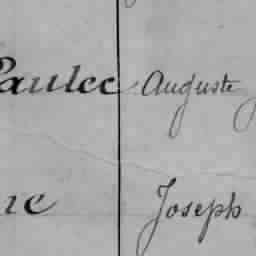 Paulec Auguste
Joseph